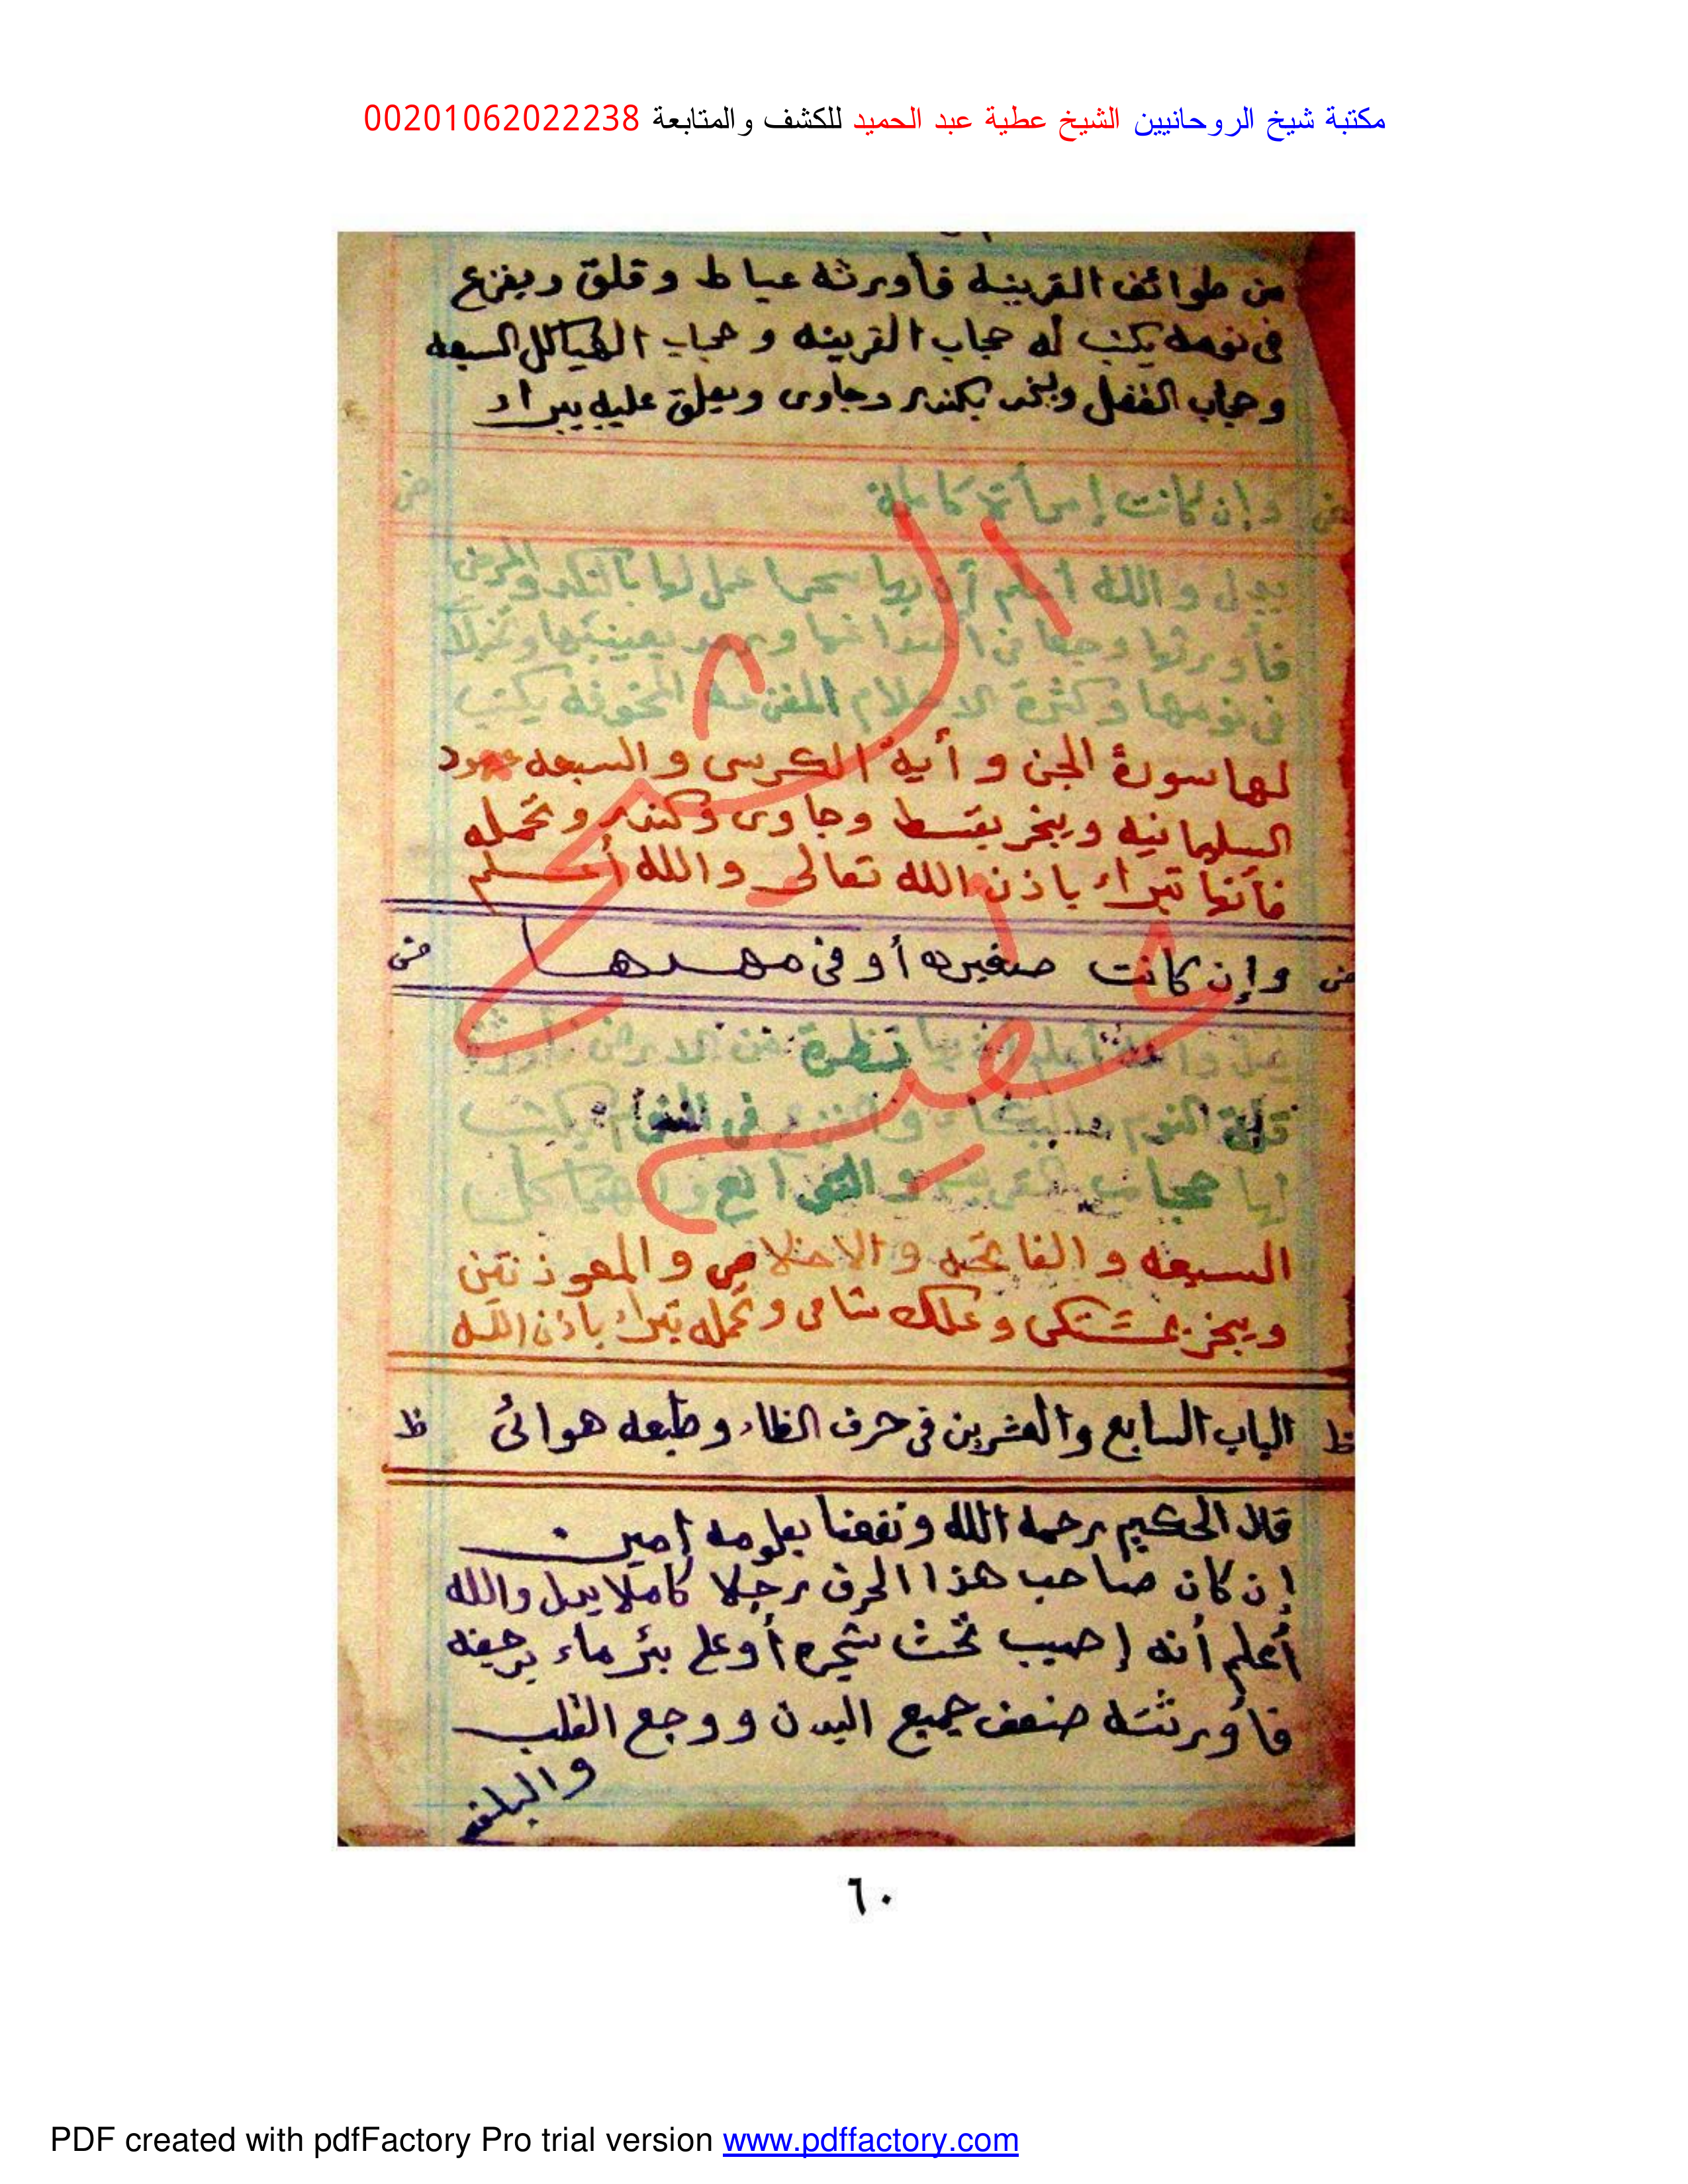 مكتبة شيخ الروحانيين الشيخ عطية عبد الحميد للكشف والمتابعة 00201062022238
من طوائف القرينه فأورثه عياط وقلق ويفزع
فى نومه يكتب له حجاب القرينه وحجاب الهياكل السبعه
وحجاب القفل ويبخر بكندر وجاوى ويعلق عليه يبراء
ض وإن كانت إمرأة كاملة ض
يدل والله أعلم أن بها سحرا عمل لها بالنكد والمرض
فأورثها وجعا فى ورمد بعينيها
فى نومها وكثرة الاحلام المفزعة المخوفة يكتب
لها سورة الجن وأية الكرسى والسبعه عهود
السليمانيه ويبخر بقسط وجاوى وكندر وتحمله
فأنها تبراء باذن الله تعالى والله أعلم
ض وإن كانت صغيره أو فى مهدها ض
يدل والله أعلم أن بها نظرة من الارض فأورثه
قلة النوم والبكاء والفزع فى النوم يكتب
لها حجاب القرينه و التوابع والهياكل
السبعه والفاتحه والاخلاص والمعوذتين
ويبخر بمشتكى وعلك شامى وتحمله تبراء باذن الله
ظ الباب السابع والعشرين فى حرف الظاء وطبعه هوائى ظ
قال الحكيم رحمه الله ونفعنا بعلومه امين
إن كان صاحب هذا الحرف رجلا كاملا يدل والله
أعلم أنه إصيب تحت شجره أو على بئر ماء برجفه
فأورثته ضعف جميع البدن ووجع القلب
والبلغم
٦٠
PDF created with pdfFactory Pro trial version www.pdffactory.com
الشيخ
عطيه